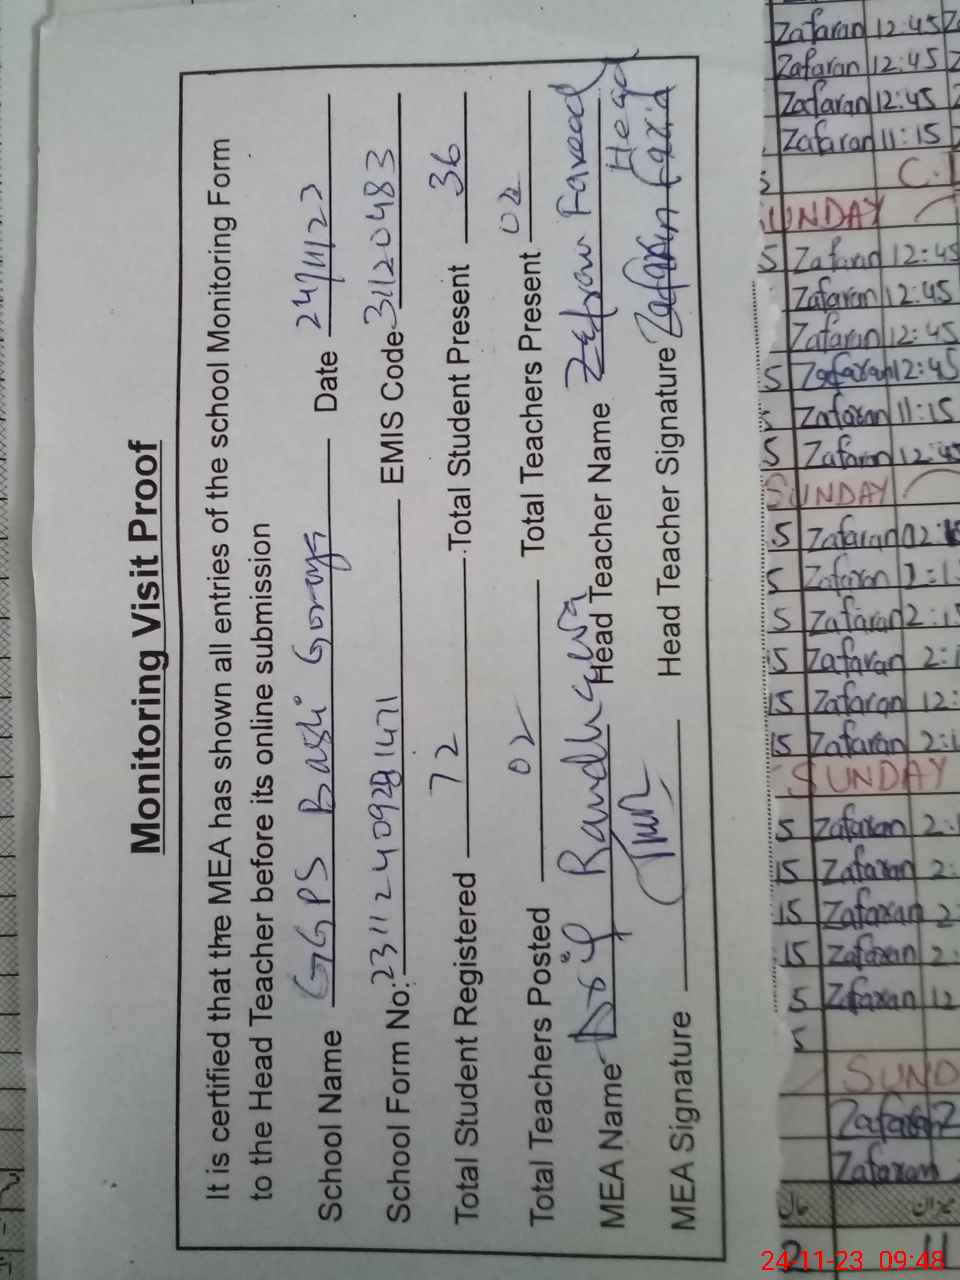 Monitoring Visit Proof
It is certified that the MEA has shown all entries of the school Monitoring Form
to the Head Teacher before its online submission
School Name GGPS Bashi Goraya Date 24/11/23
School Form No: 231112409281471 EMIS Code 31120483
Total Student Registered 72 Total Student Present 36
Total Teachers Posted 02 Total Teachers Present 02
MEA Name Randhawa Head Teacher Name Zafran Fareed
MEA Signature Head Teacher Signature Zafaran Farid
Head
Zafaran 12:45
Zafaran 12:45
Zafaran 12:45
Zafaran 11:15
SUNDAY
5 Zafaran 12:45
Zafaran 12:45
Zafaran 12:45
5 Zafaran 12:45
Zafaran 11:15
5 Zafaran 12:45
SUNDAY
5 Zafaran
5 Zafaran
5 Zafaran 2:1
5 Zafaran 2:1
15 Zafaran 12:
15 Zafaran 2:1
SUNDAY
5 Zafaran 2:
15 Zafaran 2:
15 Zafaran 2
15 Zafaran 2:
5 Zafaran 12
SUND
Zafaran 2
Zafaran
حال میزان
2 11
24-11-23 09:48